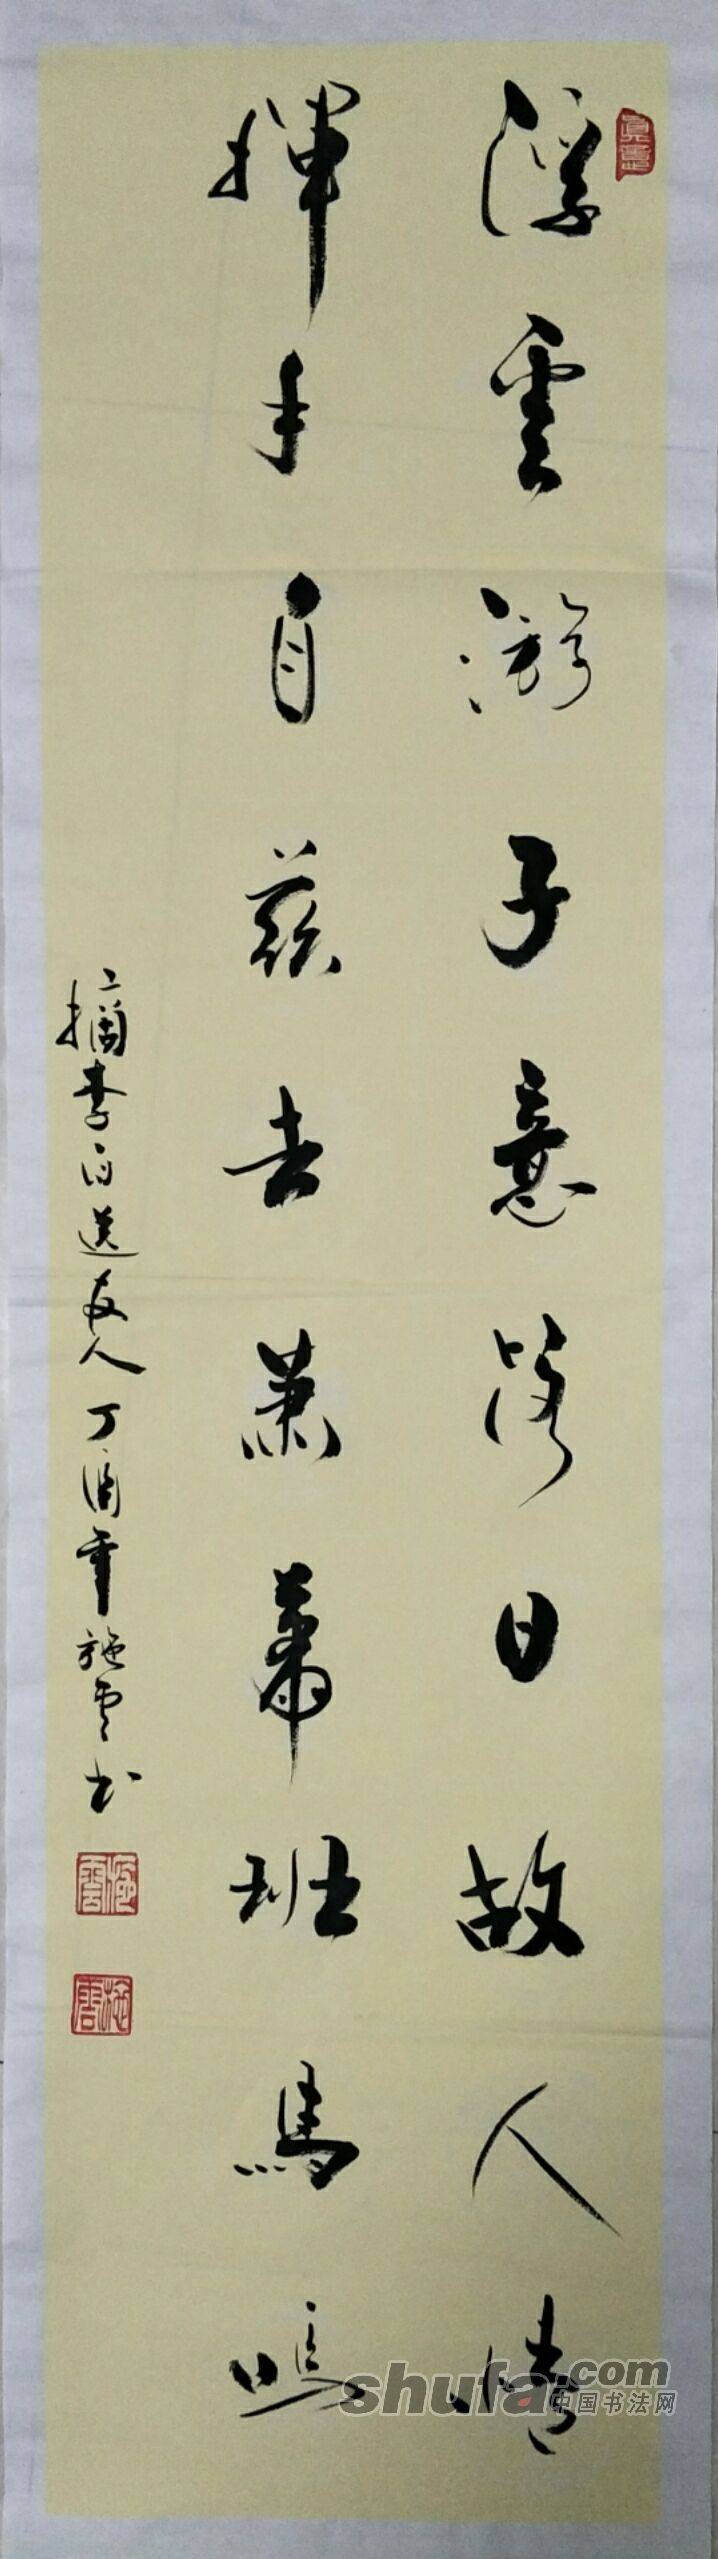 浮雲游子意落日故人情
揮手自茲去蕭蕭班馬鳴
摘李白送友人丁酉年施雲书
施雲
施雲
shufa.com
中国书法网